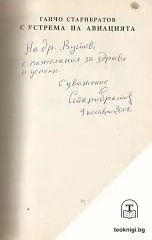 ГАНЧО СТАРИБРАТОВ
С УСТРЕМА НА АВИАЦИЯТА
На др. Вутов,
с пожелания за здраве
и успехи.
С уважение
Старибратов
teoknigi.bg